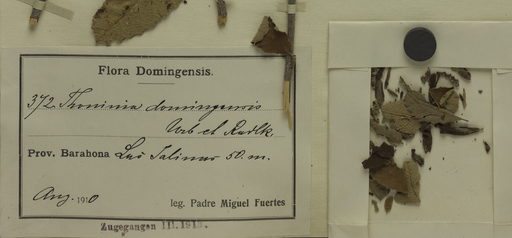 Flora Domingensis.
372. Thouinia domingensis
Urb et Radlk.
Prov. Barahona Las Salinas 50. m.
Aug. 1910
leg. Padre Miguel Fuertes
Zugegangen III.191